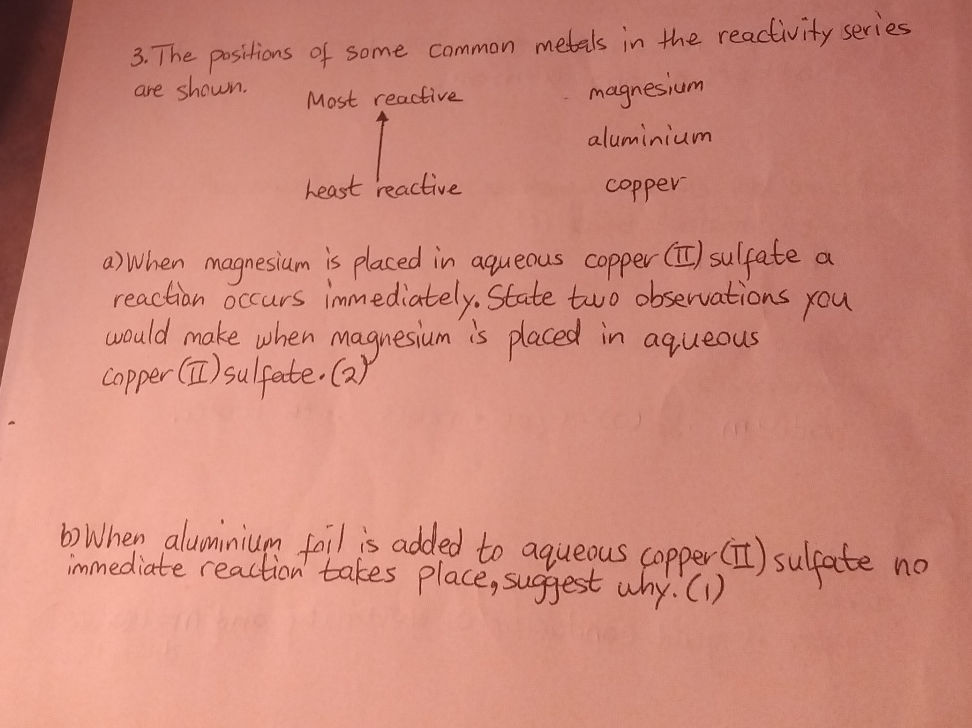 3. The positions of some common metals in the reactivity series
are shown.
Most reactive
magnesium
aluminium
Least reactive
copper
a) When magnesium is placed in aqueous copper (II) sulfate a
reaction occurs immediately. State two observations you
would make when magnesium is placed in aqueous
copper (II) sulfate. (2)
b) When aluminium foil is added to aqueous copper (II) sulfate no
immediate reaction takes place, suggest why. (1)